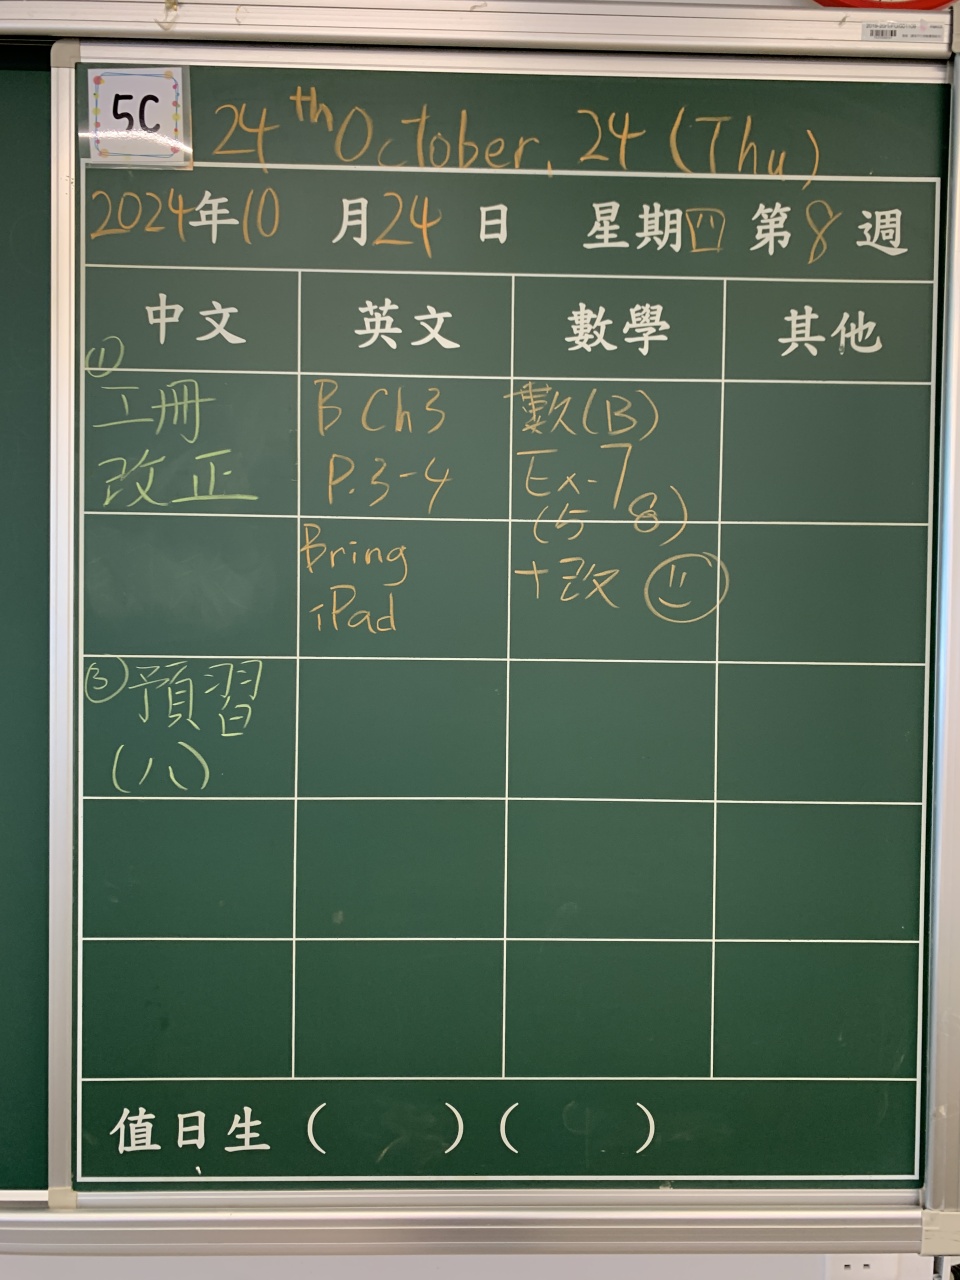 5C
24th October, 24 (Thu)
2024年10月24日 星期四 第8週
中文 英文 數學 其他
①
工冊
改正
B Ch3
P.3-4
數(B)
Ex-7
(5 8)
Bring
iPad
+改
③預習
(八)
值日生 ( ) ( )